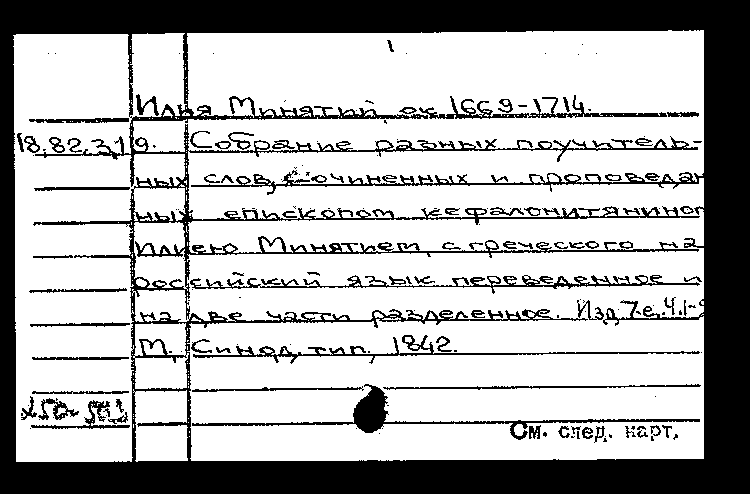 Илья Минятий, ок 1669-1714.
18.82.3.19. Собрание разных поучитель-
ных слов, сочиненных и проповедан
ных епископом кефалонитянином
Илиею Минятием, с греческого на
российский язык переведенное и
на две части разделенное. Изд. 7-е. Ч.1-
М., Синод. тип., 1842.
См. след. карт.